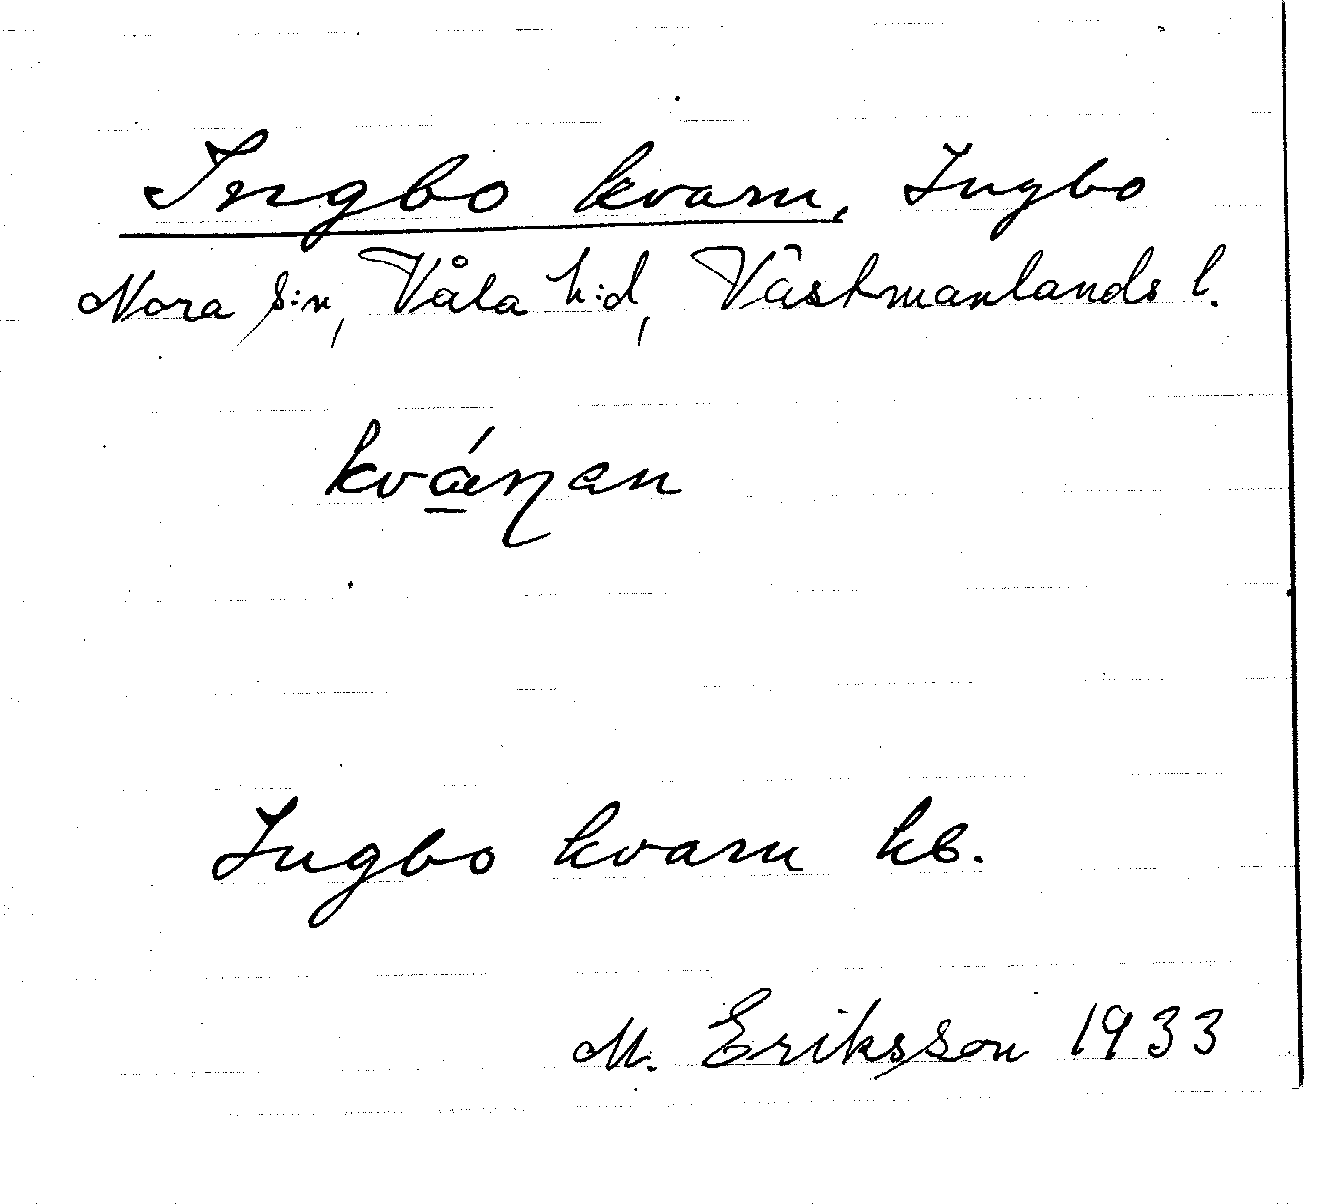 Ingbo kvarn, Ingbo
Nora s:n, Våla h:d, Västmanlands l.
Ingbo kvarn kb.
M. Eriksson 1933